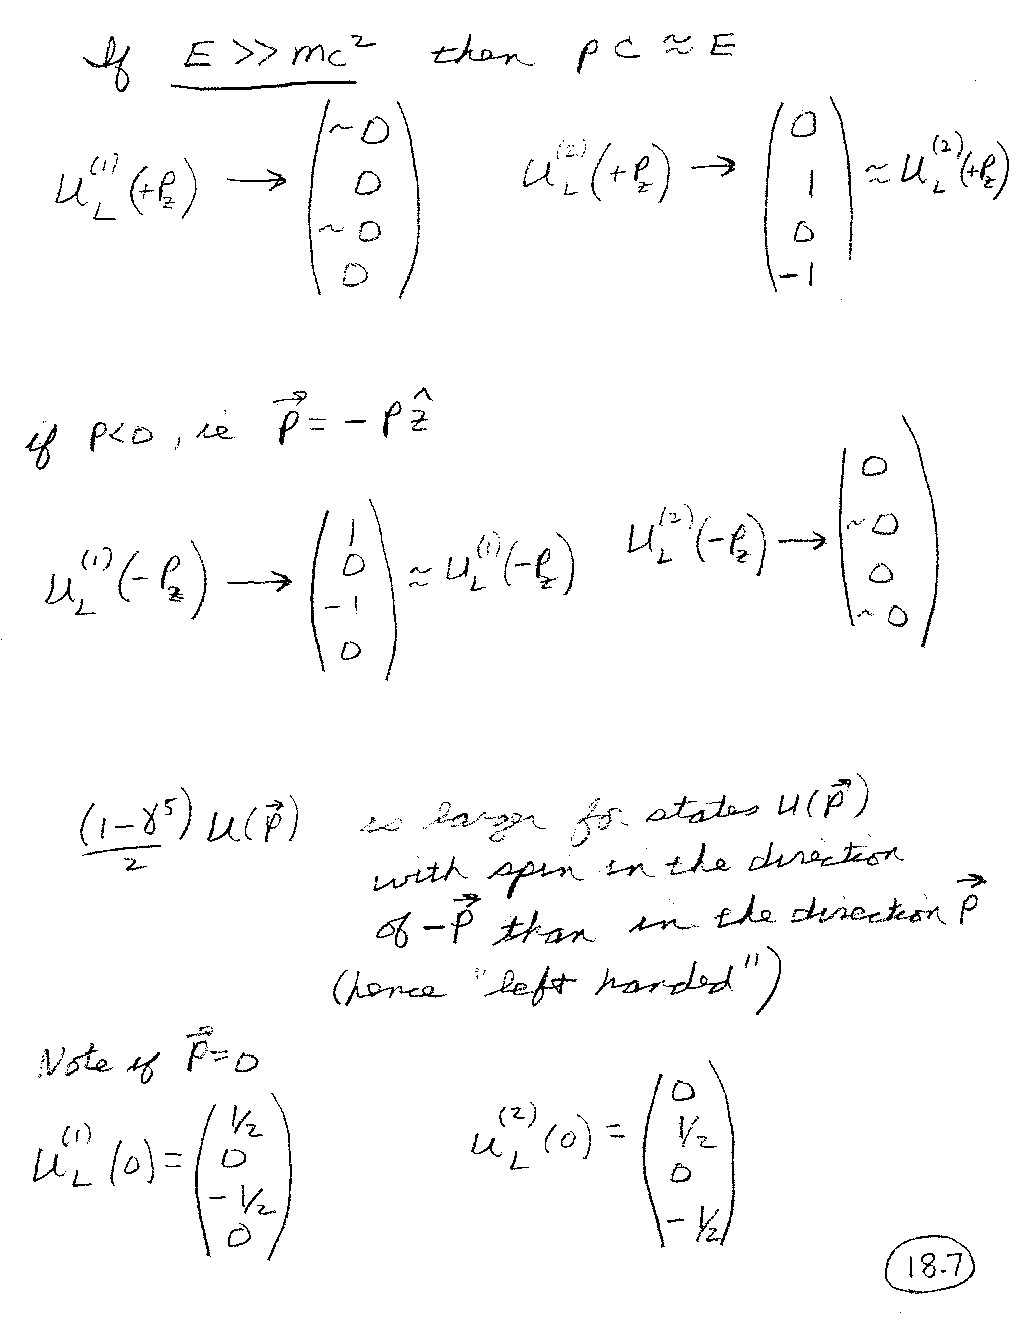 If E >> mc² then pc ≈ E
u_L^(1)(+p_z) → (~0 0 ~0 0) u_L^(2)(+p_z) → (0 1 0 -1) ≈ u_L^(2)(+p_z)
if p<0, ie p⃗ = -pẑ
u_L^(1)(-p_z) → (1 0 -1 0) ≈ u_L^(1)(-p_z) u_L^(2)(-p_z) → (0 ~0 0 ~0)
(1-γ⁵)/2 u(p⃗) is larger for states u(p⃗)
with spin in the direction
of -p⃗ than in the direction p⃗
(hence "left handed")
Note if p⃗=0
u_L^(1)(0) = (1/2 0 -1/2 0) u_L^(2)(0) = (0 1/2 0 -1/2)
18.7